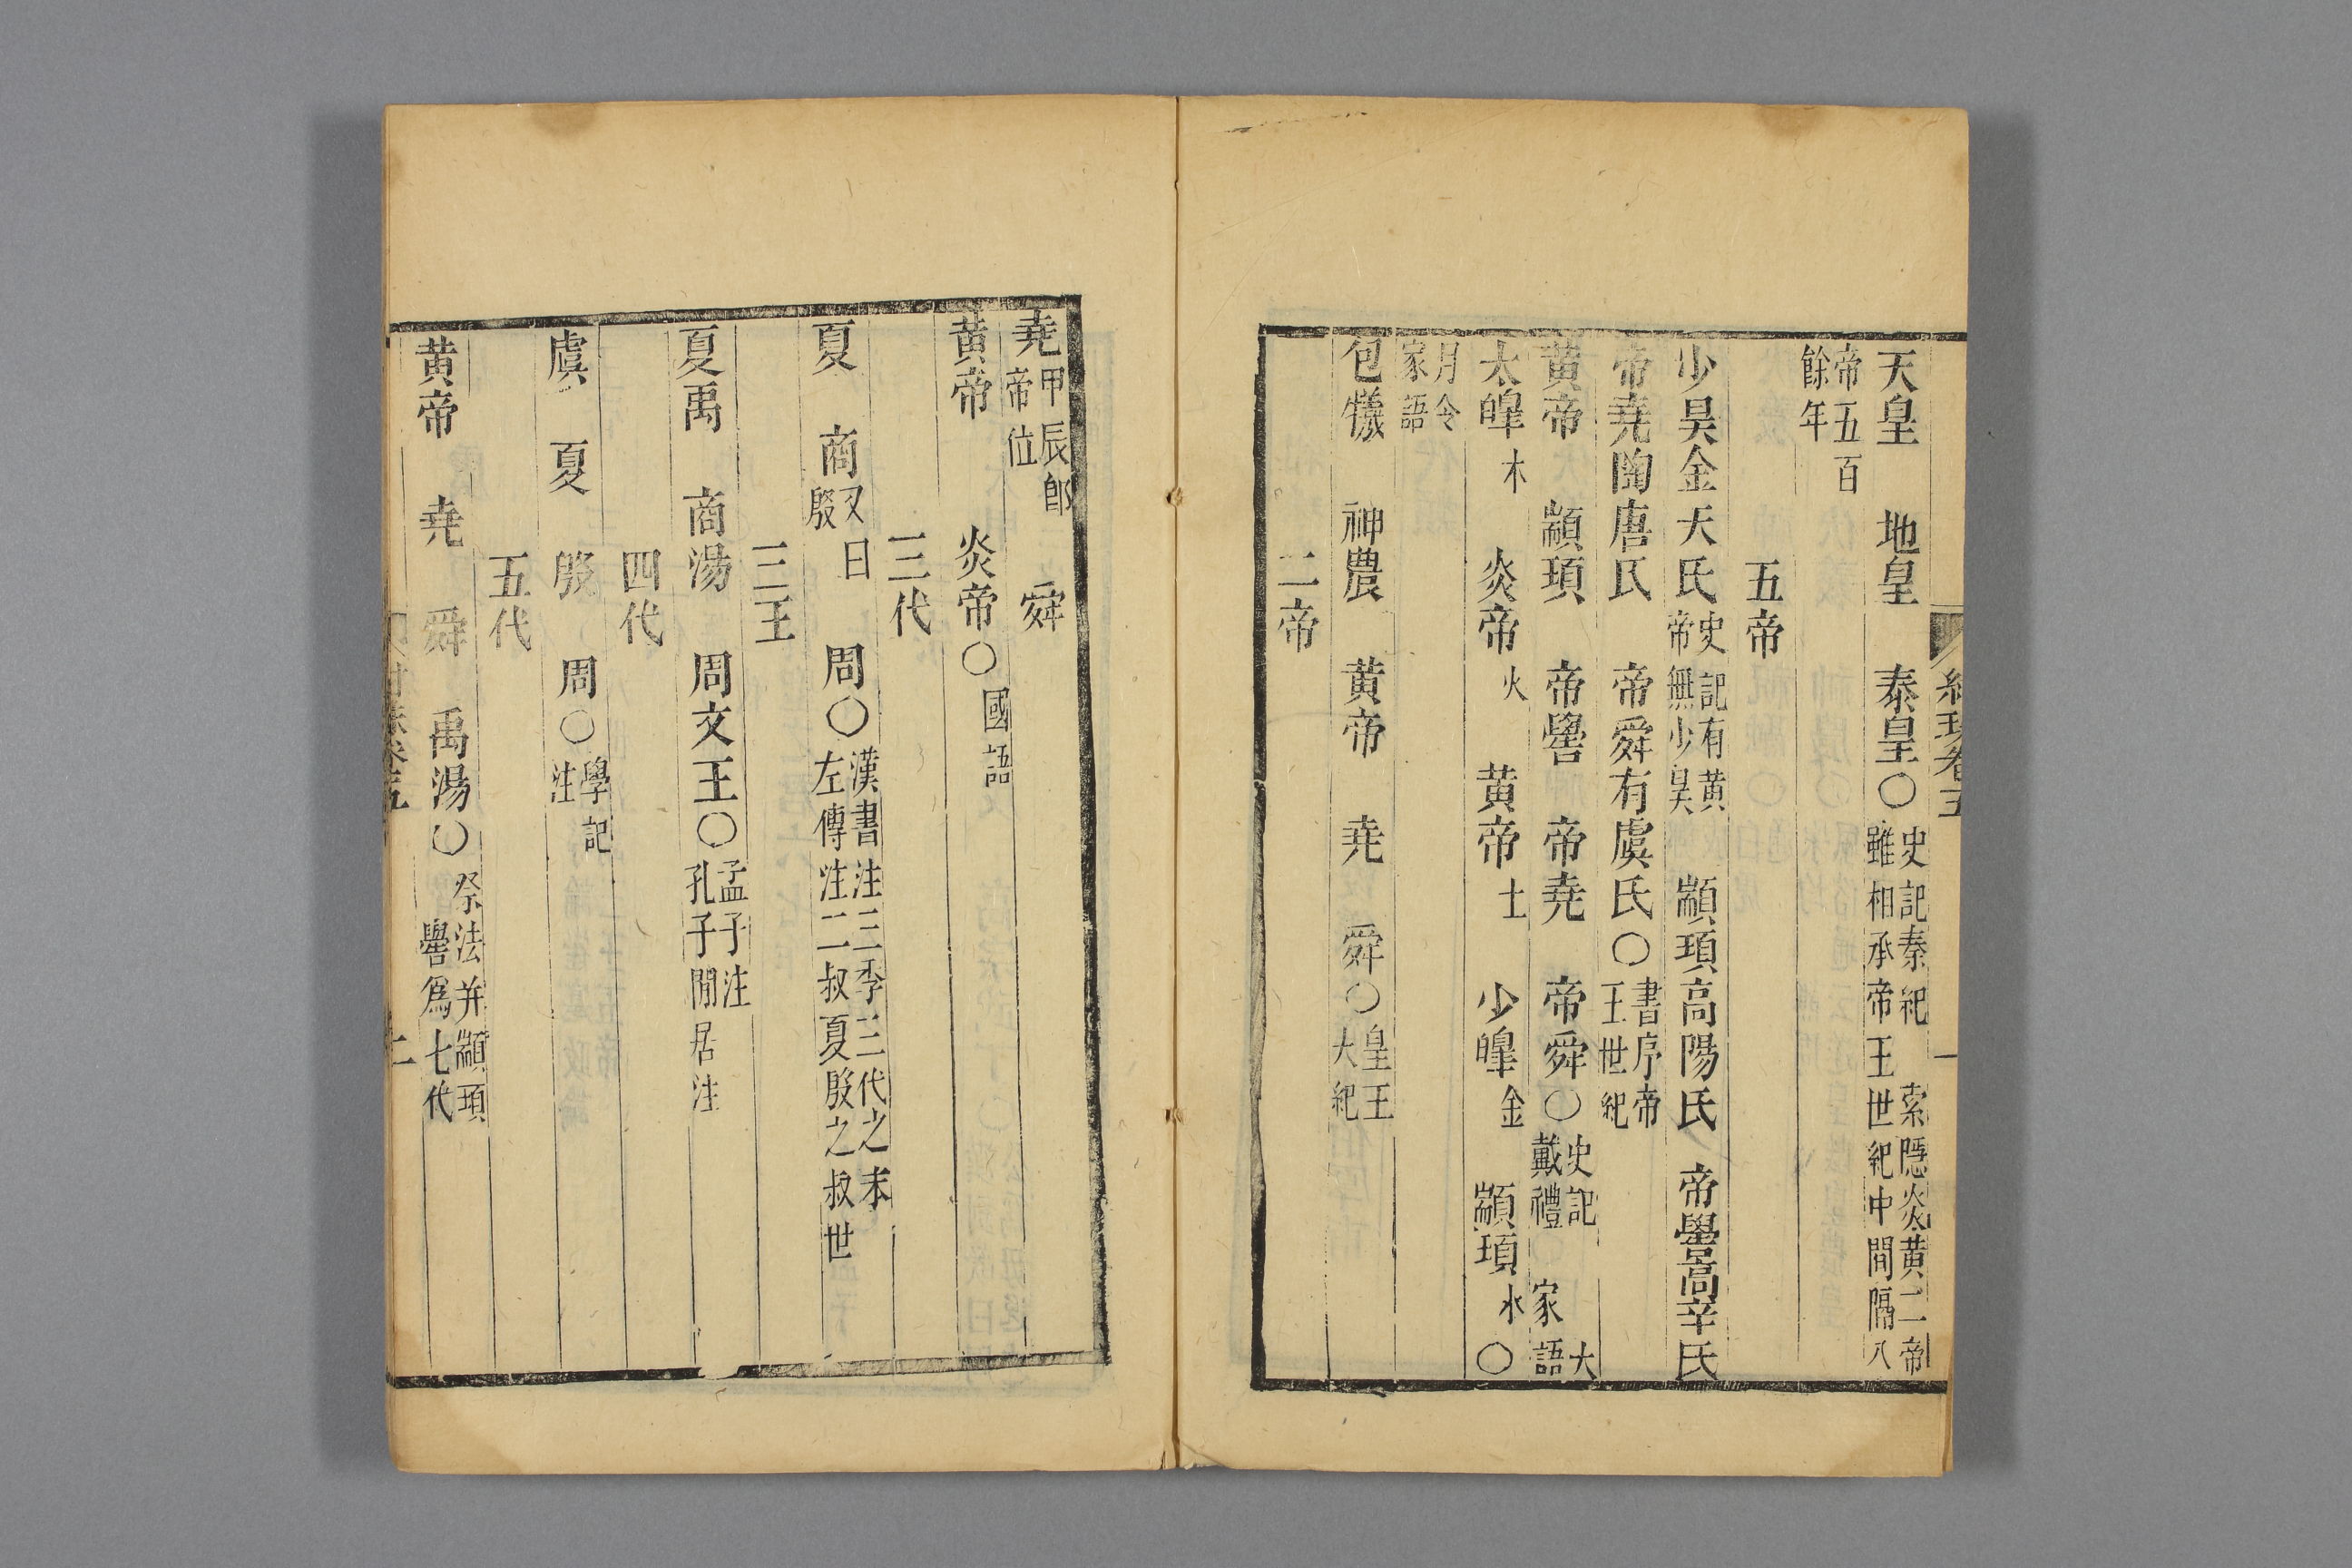 天皇　地皇　泰皇〇史記秦紀　索隱炎黄二帝雖相承帝王世紀中間隔八
帝五百餘年
五帝
少昊金天氏史記有黄帝無少昊　顓頊高陽氏　帝嚳高辛氏
帝堯陶唐氏　帝舜有虞氏〇書序帝王世紀
黄帝　顓頊　帝嚳　帝堯　帝舜〇史記　大戴禮　家語
太皥木　炎帝火　黄帝土　少皥金　顓頊水〇
月令家語
包犧　神農　黄帝　堯　舜〇皇王大紀
二帝
堯甲辰即帝位　舜
黄帝　炎帝〇國語
三代
夏　商又曰殷　周〇漢書注三季三代之末左傳注二叔夏殷之叔世
三王
夏禹　商湯　周文王〇孟子注孔子閒居注
四代
虞　夏　殷　周〇學記注
五代
黄帝　堯　舜　禹湯〇祭法并顓頊嚳爲七代
卷五
二